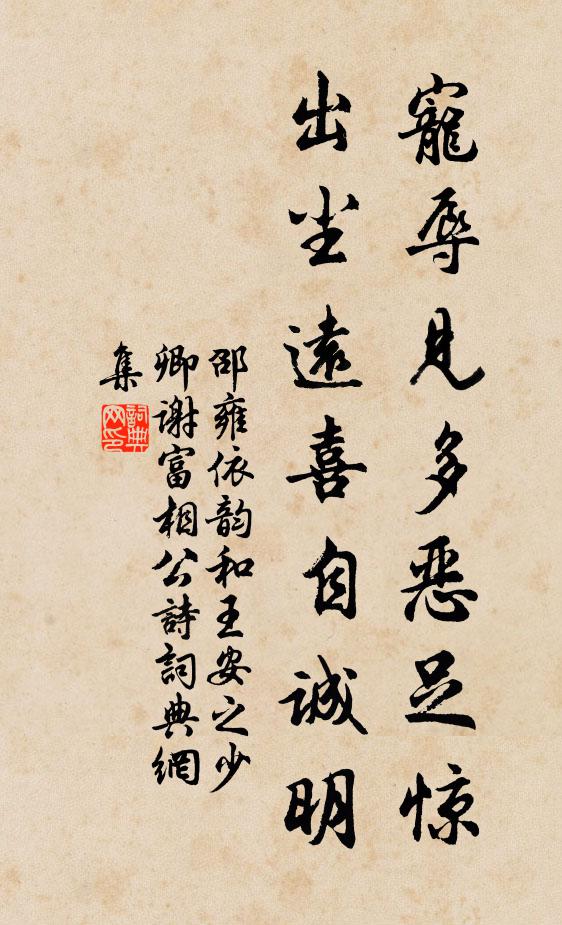 寵辱見多惡足惊
出坐遠喜自誠明
邵雍依韵和王安之少
卿谢富相公詩詞典網
集
詞典网印